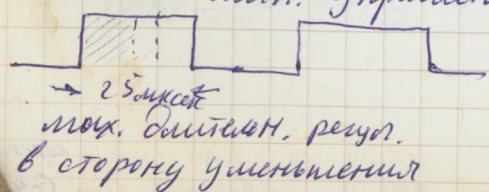 25 мксек
мах. длительн. регул.
в сторону уменьшения